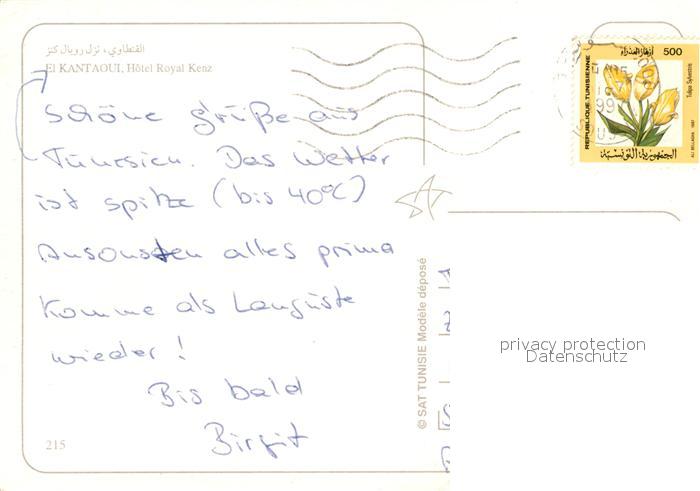 القنطاوي، نزل رويال كنز
El KANTAOUI, Hôtel Royal Kenz
Schöne Grüße aus
Tunesien. Das Wetter
ist spitze (bis 40°C)
Ansonsten alles prima
Komme als Languste
wieder!
Bis bald
Birgit
215
© SAT TUNISIE Modèle déposé
500
REPUBLIQUE TUNISIENNE
Tulipa Sylvestris
الجمهورية التونسية
privacy protection
Datenschutz